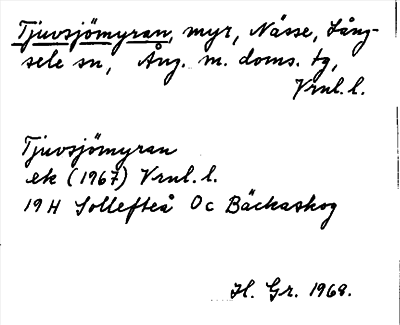 Tjuvsjömyran, myr, Nässe, Lång-
sele sn, Ång. m. doms. tg,
Vrnl. l.
Tjuvsjömyran
ek (1967) Vrnl. l.
19 H Sollefteå Oc Bäckaskog
H. Gr. 1968.